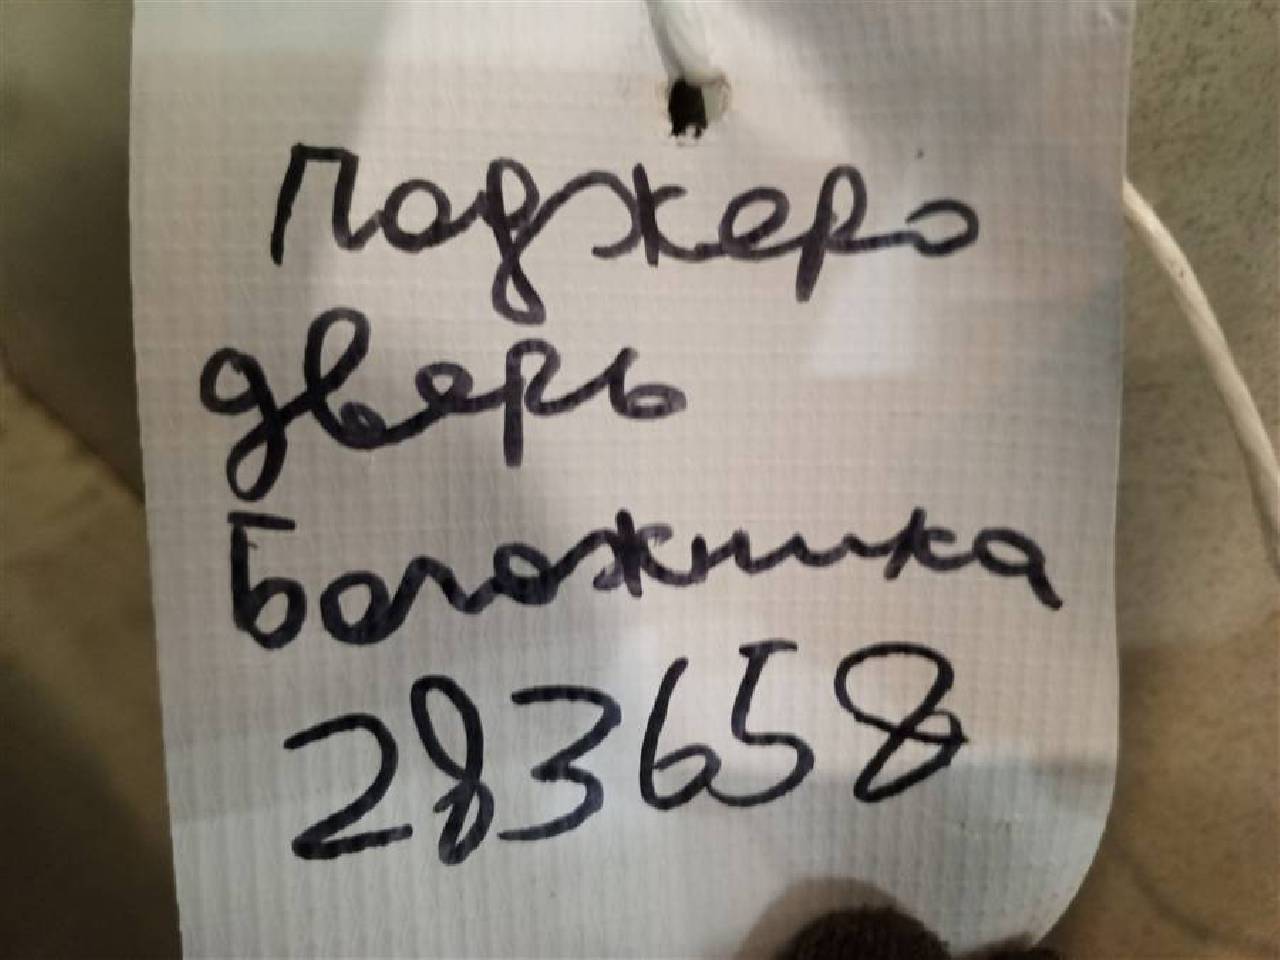 Паджеро
дверь
Богажника
283658